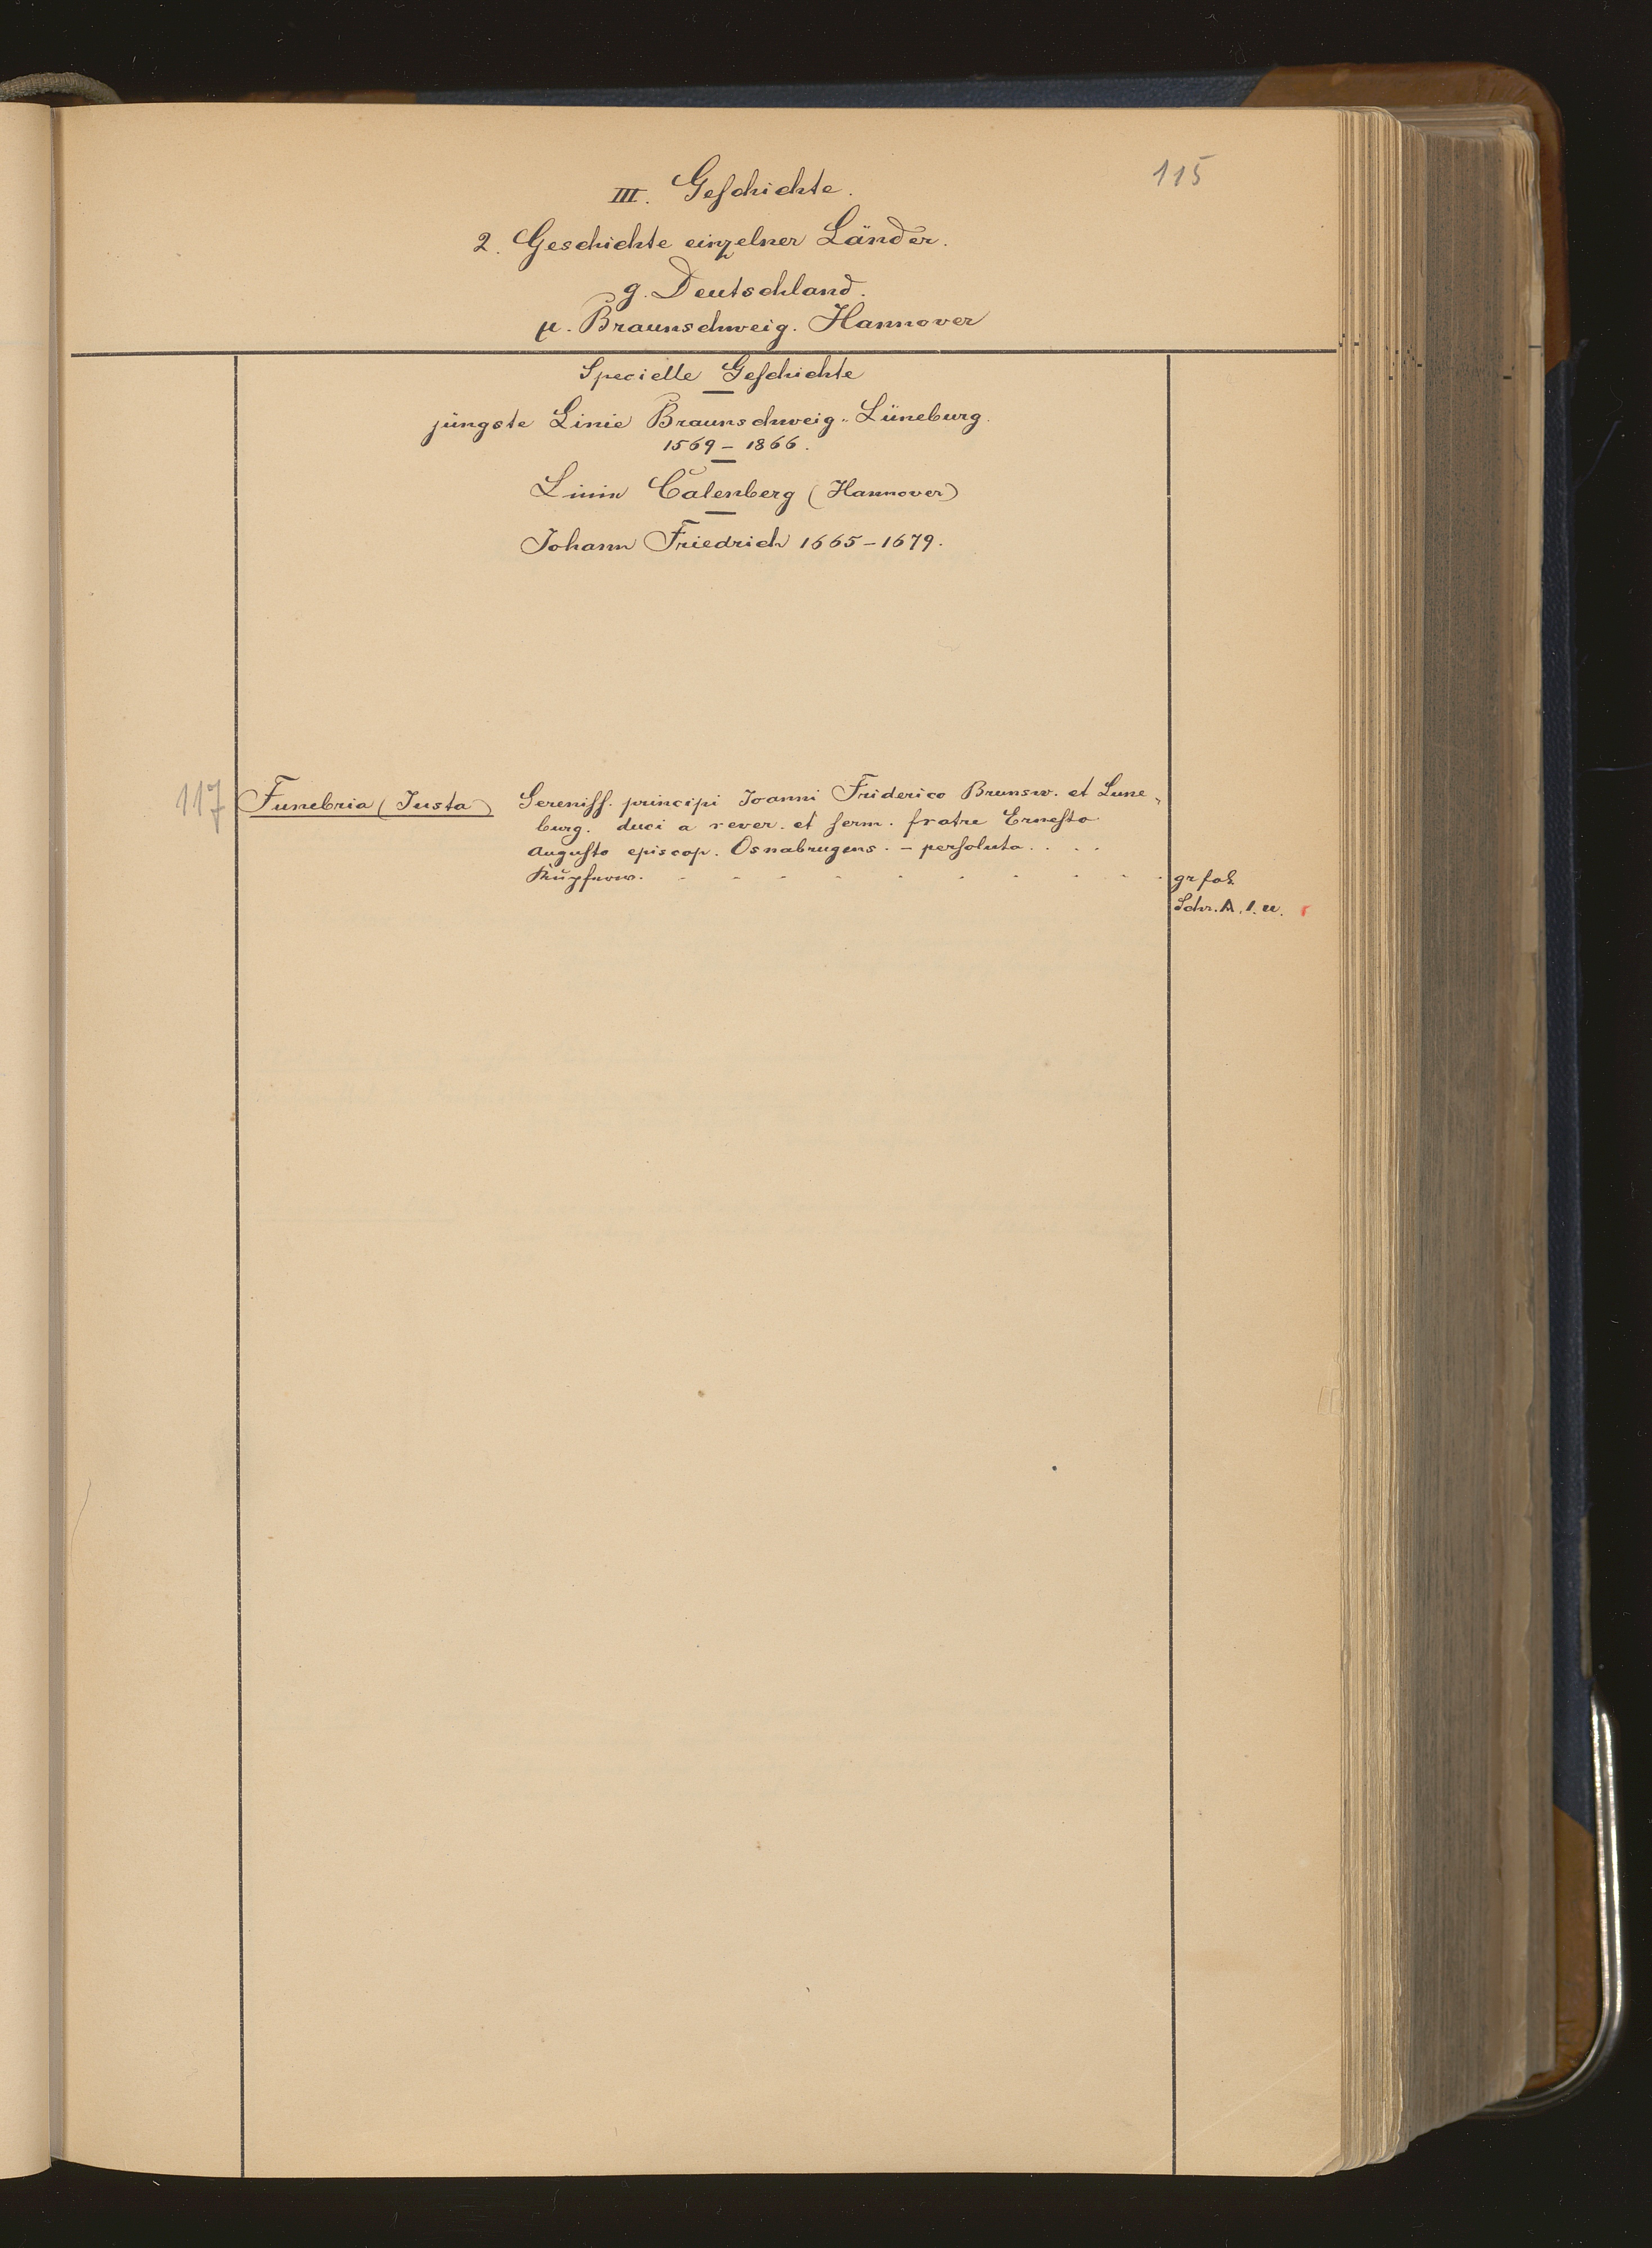 115
III. Geschichte.
2. Geschichte einzelner Länder.
g. Deutschland.
μ. Braunschweig. Hannover
Specielle Geschichte
jüngste Linie Braunschweig-Lüneburg.
1569 – 1866.
Linie Calenberg (Hannover)
Johann Friedrich 1665 – 1679.
117 Funebria (Justa) Sereniss. principi Joanni Friderico Brunsw. et Lune-
burg. duci a rever. et serm. fratre Ernesto
Augusto episcop. Osnabrugens. – persoluta . . . .
Kupferw. . . . . . . . . . . gr fol.
Schr. A. 1. u. r